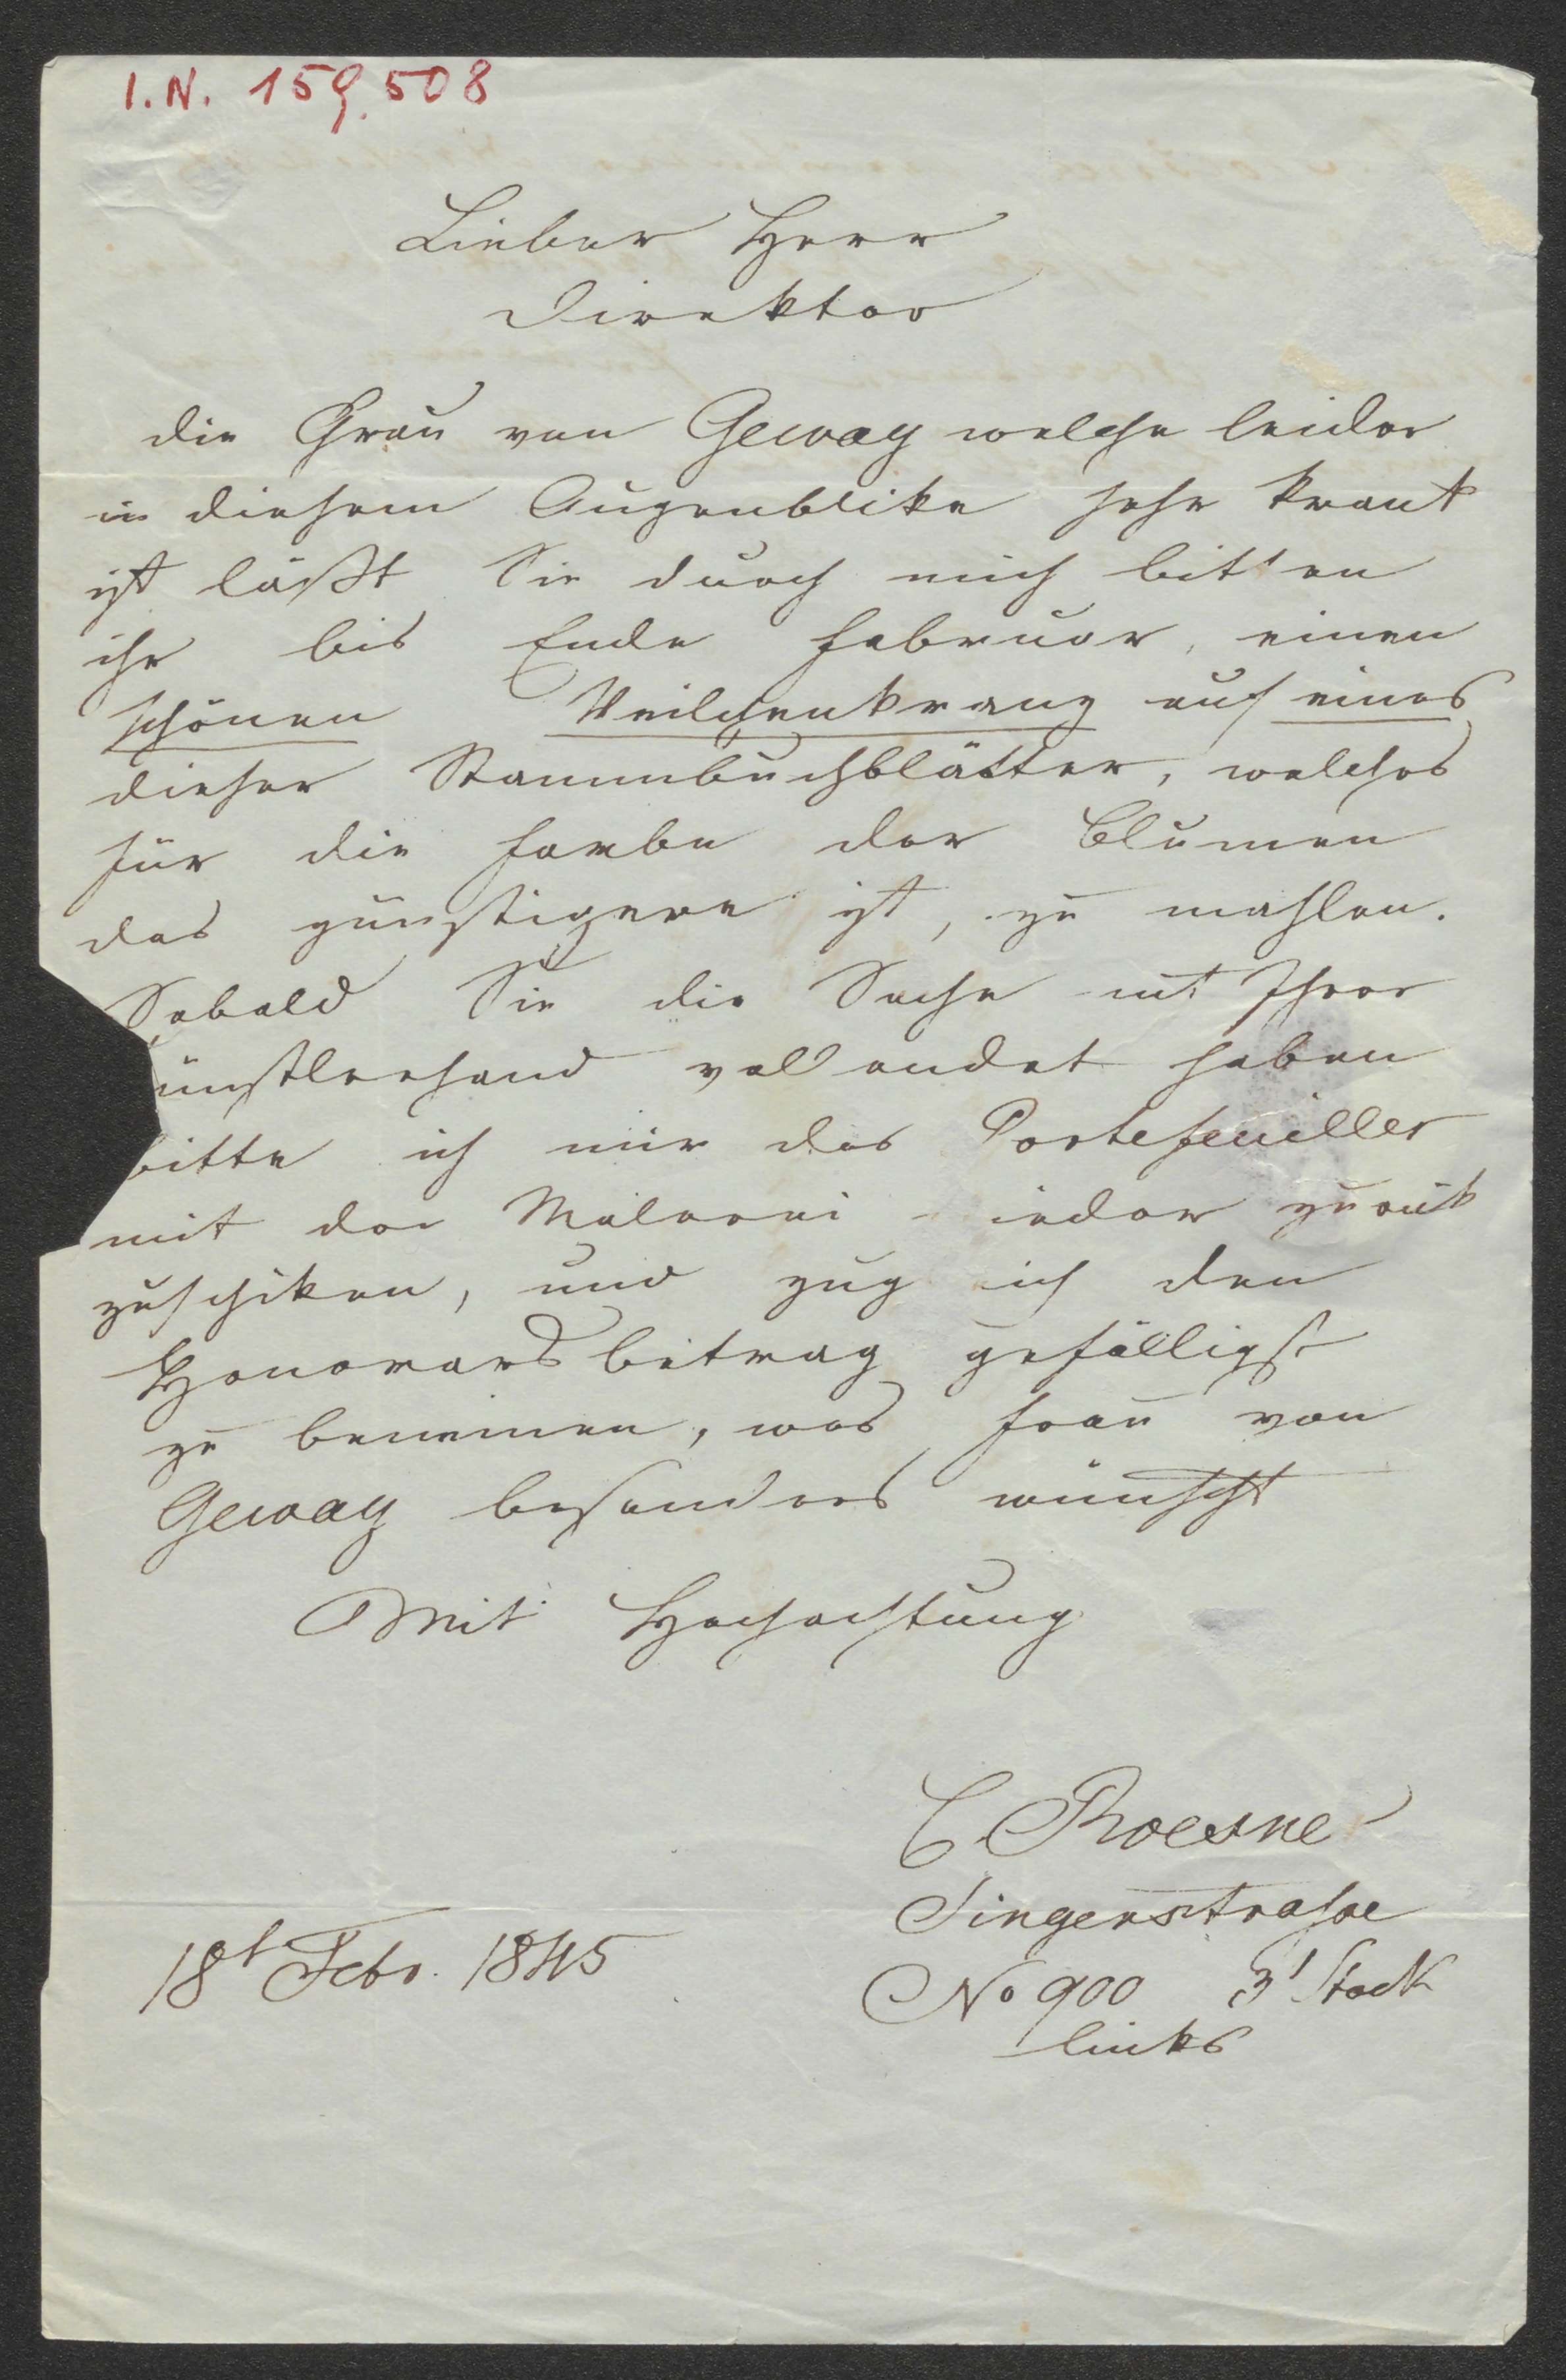 I.N. 159.508
Lieber Herr
Direktor
die Frau von Geway welche leider
in diesem Augenblike sehr krank
ist läßt Sie durch mich bitten
ihr bis Ende Februar, einen
schönen Veilchenkranz auf eines
dieser Stammbuchblätter, welches
für die Farbe der Blumen
das günstigere ist, zu mahlen.
Sobald Sie die Sache mit Ihrer
ünstlerhand vollendet haben
bitte ich mir das Portefeuilles
mit der Malerei ieder zurük
zuschiken, und zug ich den
Honorarsbetrag gefälligst
zu benennen, was Frau von
Geway besonders wünscht
Mit Hochachtung
C Roesner
Singerstrasse
No 900 3t Stock
links
18t Febr. 1845